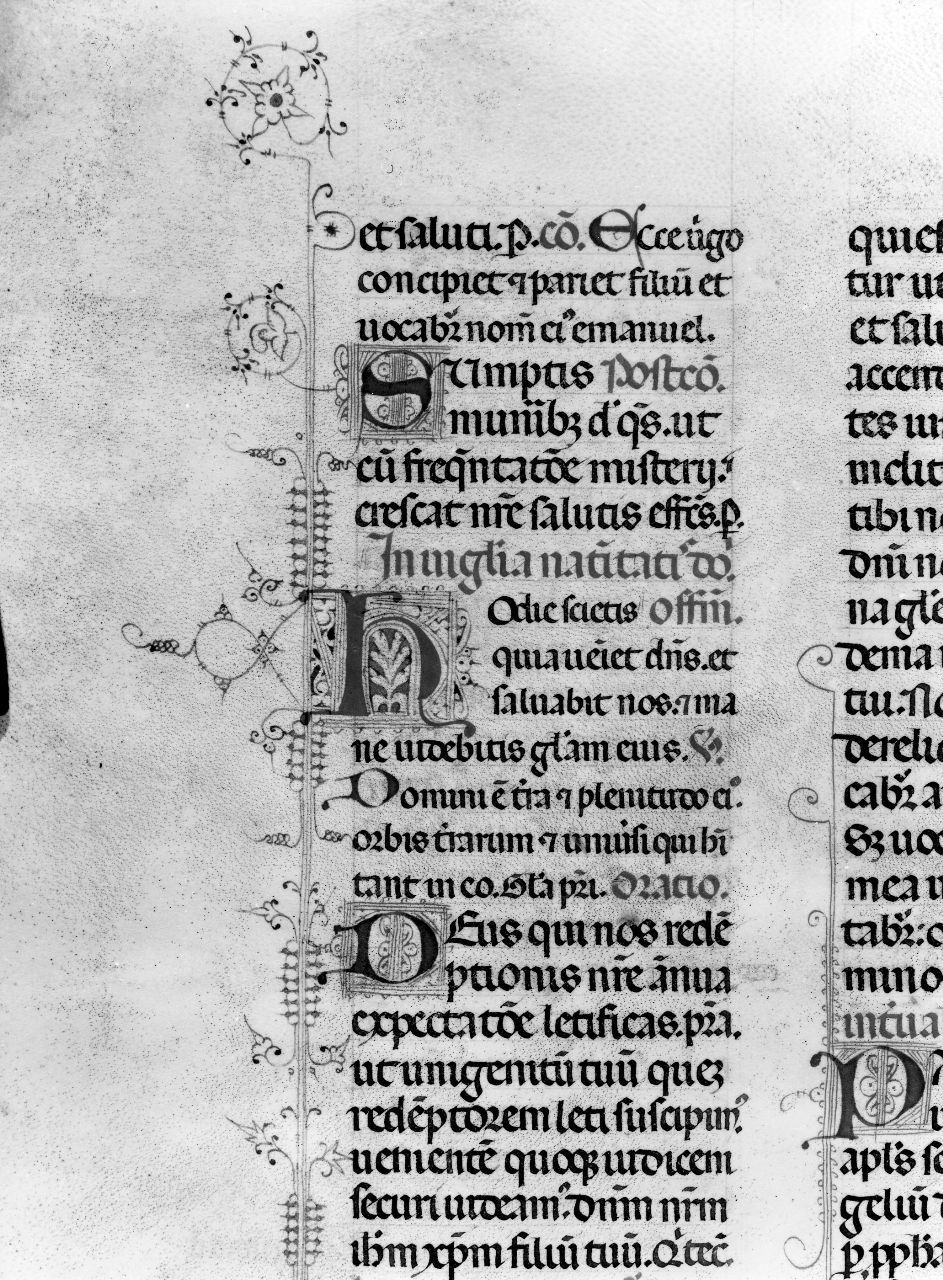 et saluti. p. cō. Ecce ůgo
concipiet ⁊ pariet filiū et
uocabr̄ nom̄ ei⁹ emanuel.
Sumptis Postcō.
munib̄ȝ d' q̄s. ut
cū freq̄ntatōe misterij.
crescat nr̄e salutis effc̄s. p.
In uigl'ia natiuitati⁹ do'.
Hodie scietis Offm̄.
quia uēiet dn̄s. et
saluabit nos. ⁊ ma
ne uidebitis gl'am eius. V.
Domini ē tr̄a ⁊ plenitudo ei⁹.
orbis tr̄arum ⁊ uniu'si qui hī
tant in eo. Gl'a pr̄i. Oratio.
Deus qui nos redē
ptionis nr̄e ānua
expectatōe letificas. pr̄a.
ut unigenitū tuū queȝ
redēptorem leti suscipim⁹.
uenientē quoqȝ iudicem
securi uideam⁹. dnm̄ nr̄m
ih̄m xp̄m filiū tuū. Q' tec̄.
quies
tur
et salu
accen
tes
inclit
tibi
dnī
na gl'e
denia
tiu.
dereli
cabr̄ a
Sȝ uoc
mea
tabr̄:
mino
intua
P
apl's
geliū
p. pph'